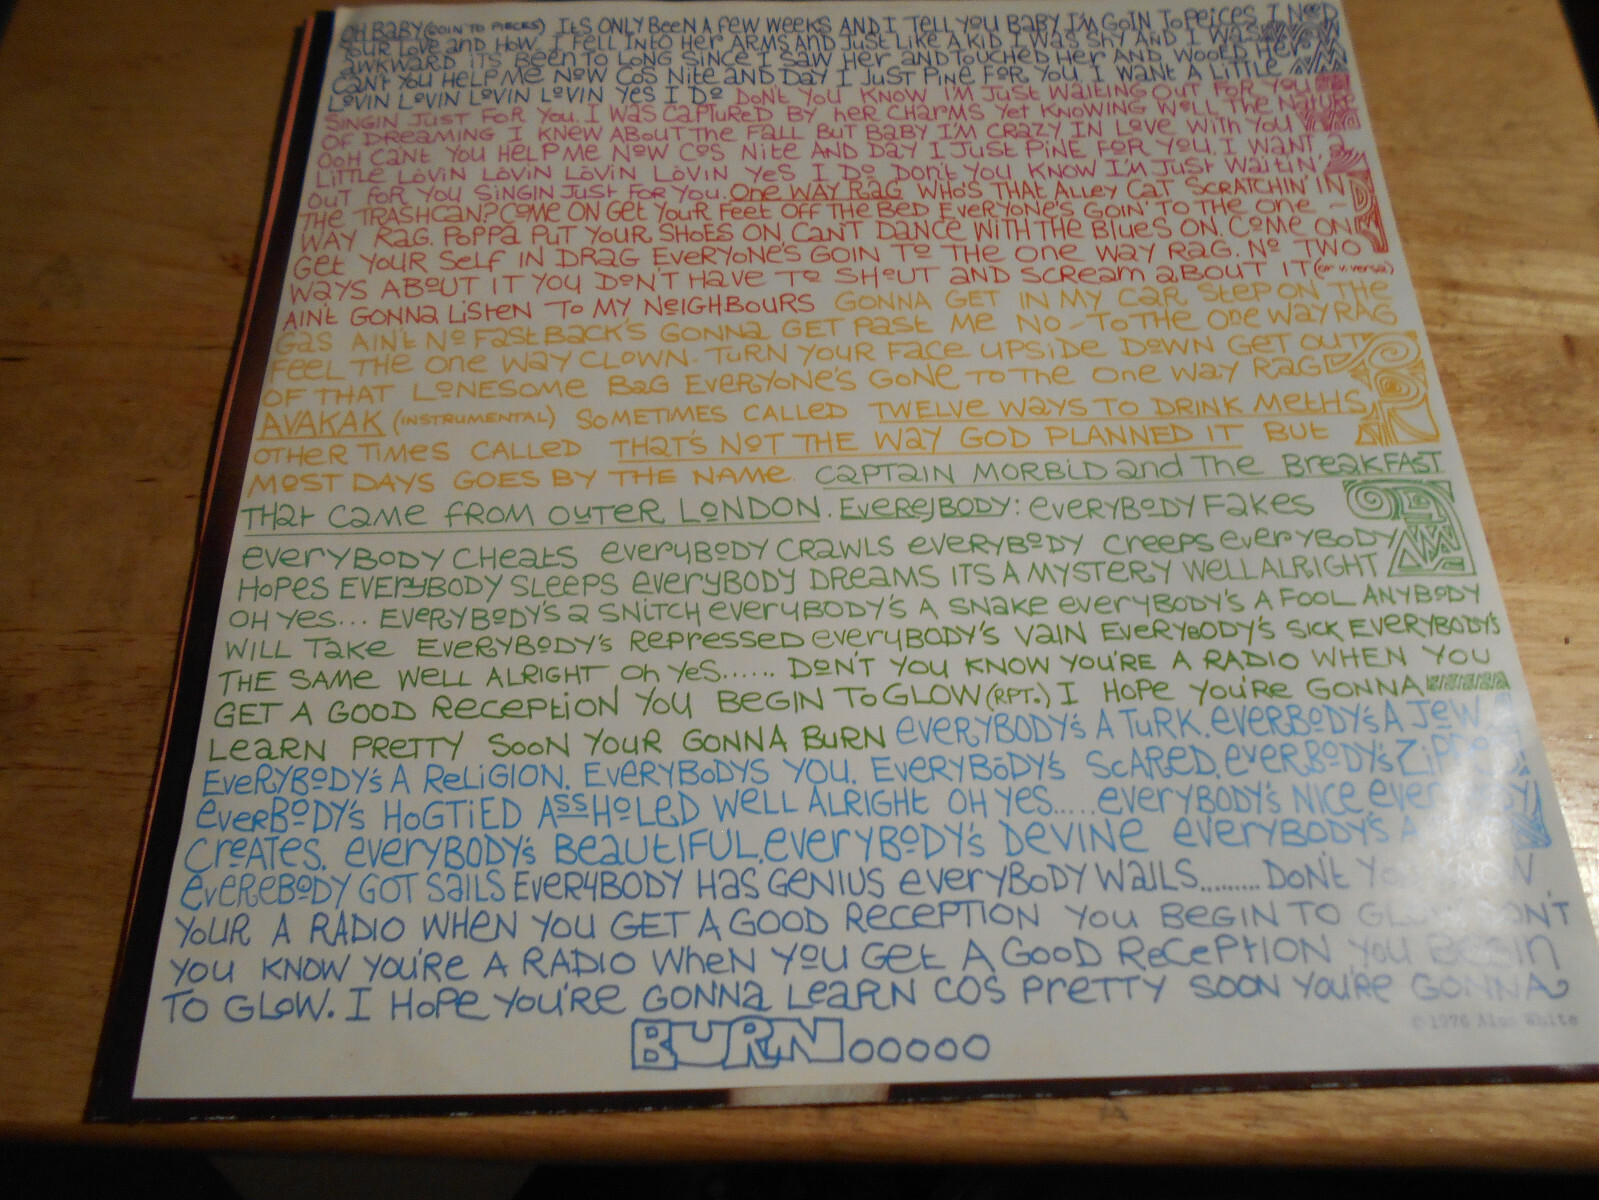 OH BABY (GOIN TO PIECES) ITS ONLY BEEN A FEW WEEKS AND I TELL YOU BABY I'M GOIN TO PEICES I NEED
YOUR LOVE AND HOW. I FELL INTO HER ARMS AND JUST LIKE A KID I WAS SHY AND I WAS
AWKWARD ITS BEEN TO LONG SINCE I SAW HER AND TOUCHED HER AND WOOED HER
CANT YOU HELP ME NOW COS NITE AND DAY I JUST PINE FOR YOU I WANT A LITTLE
LOVIN LOVIN LOVIN LOVIN YES I DO DONT YOU KNOW I'M JUST WAITING OUT FOR YOU
SINGIN JUST FOR YOU. I WAS CAPTURED BY HER CHARMS YET KNOWING WELL THE NATURE
OF DREAMING I KNEW ABOUT THE FALL BUT BABY I'M CRAZY IN LOVE WITH YOU
OOH CANT YOU HELP ME NOW COS NITE AND DAY I JUST PINE FOR YOU. I WANT A
LITTLE LOVIN LOVIN LOVIN LOVIN YES I DO DON'T YOU KNOW I'M JUST WAITIN'
OUT FOR YOU SINGIN JUST FOR YOU. ONE WAY RAG WHO'S THAT ALLEY CAT SCRATCHIN' IN
THE TRASHCAN? COME ON GET YOUR FEET OFF THE BED EVERYONE'S GOIN' TO THE ONE -
WAY RAG. POPPA PUT YOUR SHOES ON CAN'T DANCE WITH THE BLUES ON. COME ON
GET YOUR SELF IN DRAG EVERYONE'S GOIN TO THE ONE WAY RAG. NO TWO
WAYS ABOUT IT YOU DON'T HAVE TO SHOUT AND SCREAM ABOUT IT (OR V. VERSA)
AIN'T GONNA LISTEN TO MY NEIGHBOURS GONNA GET IN MY CAR STEP ON THE
GAS AIN'T NO FASTBACK'S GONNA GET PAST ME NO - TO THE ONE WAY RAG
FEEL THE ONE WAY CLOWN. TURN YOUR FACE UPSIDE DOWN GET OUT
OF THAT LONESOME BAG EVERYONE'S GONE TO THE ONE WAY RAG
AVAKAK (INSTRUMENTAL) SOMETIMES CALLED TWELVE WAYS TO DRINK METHS,
OTHER TIMES CALLED THAT'S NOT THE WAY GOD PLANNED IT BUT
MOST DAYS GOES BY THE NAME. CAPTAIN MORBID and THE BREAKFAST
THAT CAME FROM OUTER LONDON. EVEREJBODY: EVERYBODY FAKES
EVERYBODY CHEATS EVERYBODY CRAWLS EVERYBODY CREEPS EVERYBODY
HOPES EVERYBODY SLEEPS EVERYBODY DREAMS ITS A MYSTERY WELL ALRIGHT
OH YES... EVERYBODY'S A SNITCH EVERYBODY'S A SNAKE EVERYBODY'S A FOOL ANYBODY
WILL TAKE EVERYBODY'S REPRESSED EVERYBODY'S VAIN EVERYBODY'S SICK EVERYBODY'S
THE SAME WELL ALRIGHT OH YES...... DON'T YOU KNOW YOU'RE A RADIO WHEN YOU
GET A GOOD RECEPTION YOU BEGIN TO GLOW (RPT.) I HOPE YOU'RE GONNA
LEARN PRETTY SOON YOUR GONNA BURN EVERYBODY'S A TURK. EVERBODY'S A JEW
EVERYBODY'S A RELIGION. EVERYBODYS YOU. EVERYBODY'S SCARED. EVERBODY'S
EVERBODY'S HOGTIED ASSHOLED WELL ALRIGHT OH YES..... EVERYBODY'S NICE
CREATES. EVERYBODY'S BEAUTIFUL. EVERYBODY'S DEVINE EVERYBODY'S
EVEREBODY GOT SAILS EVERYBODY HAS GENIUS EVERYBODY WAILS......... DON'T YOU KNOW
YOUR A RADIO WHEN YOU GET A GOOD RECEPTION YOU BEGIN TO GLOW DON'T
YOU KNOW YOU'RE A RADIO WHEN YOU GET A GOOD RECEPTION YOU BEGIN
TO GLOW. I HOPE YOU'RE GONNA LEARN COS PRETTY SOON YOU'RE GONNA
© 1976 Alan White
BURN ooooo